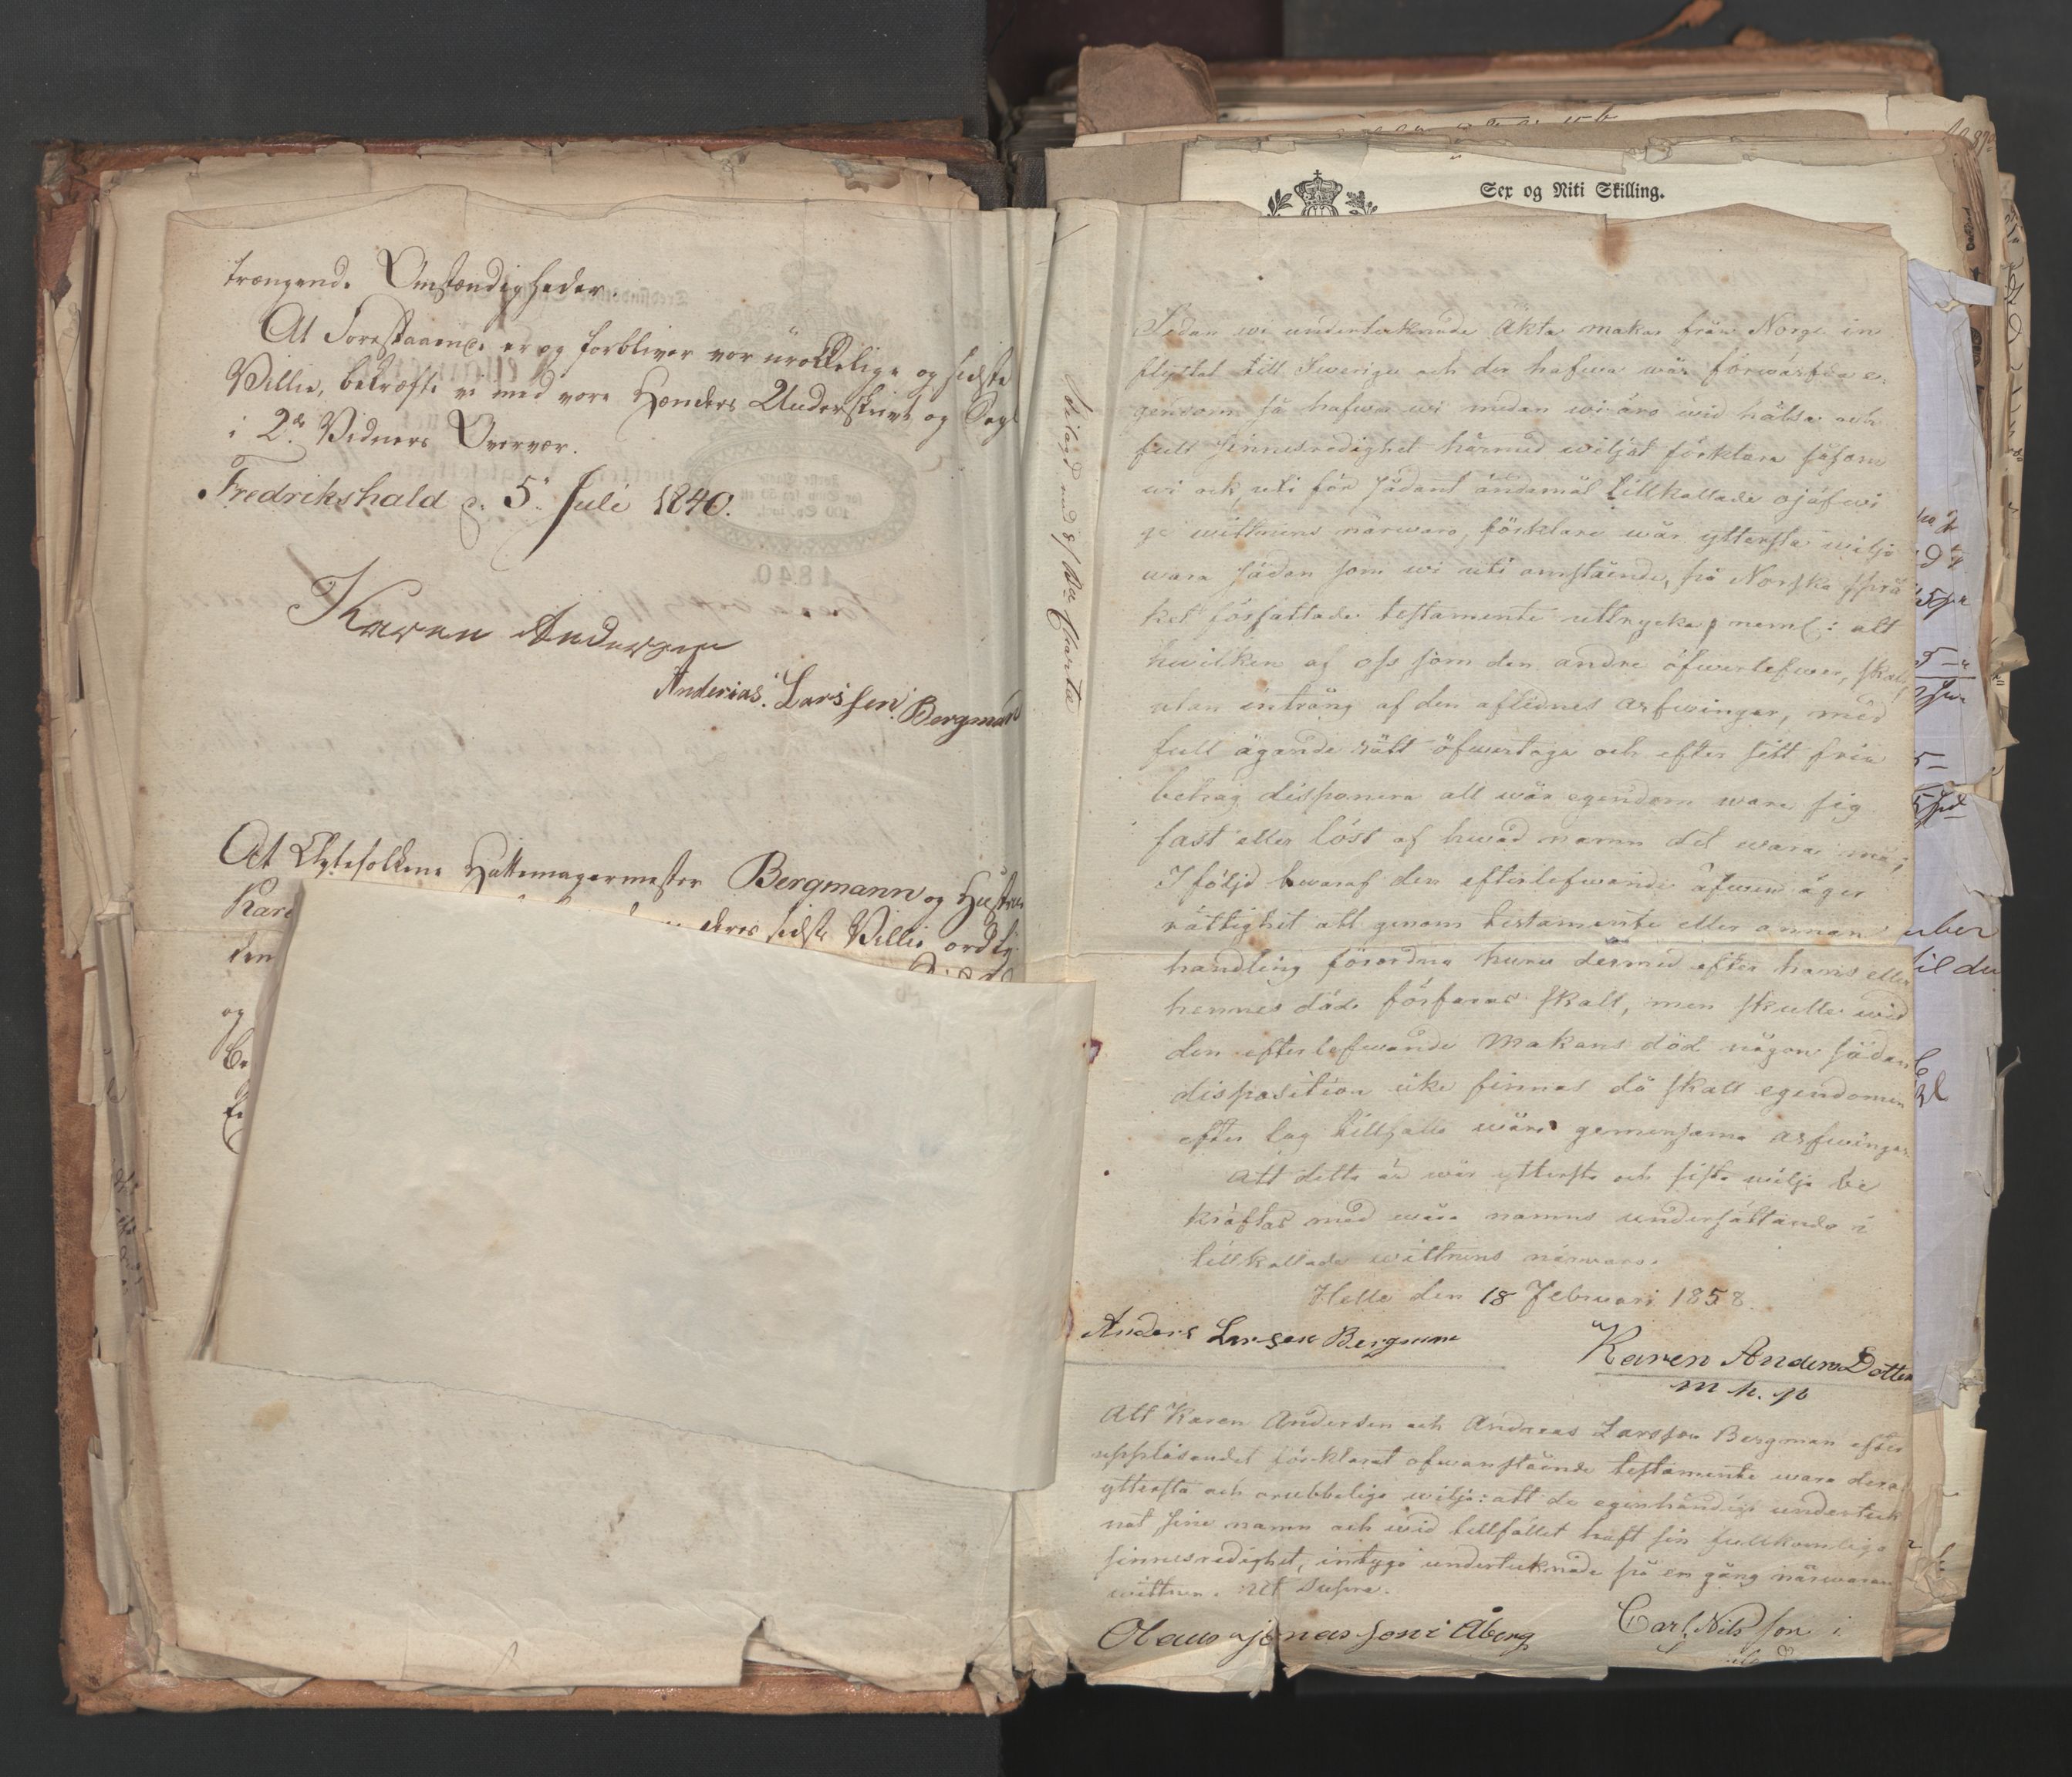 trængende Omstændigheder.
At Forestaaende er og forbliver vor urokkelige og sidste
Villie, bekræfte vi med vore Hænders Underskrivt og Segl
i 2de Vidners Overvær.
Fredrikshald d. 5 Juli 1840.
Karen Andersen
Anderias Larssen Bergman
At Ægtefolkene Hattemagermester Bergmann og Hustrue
Kare
deres sidste Villie ordly
den
og
Sex og Niti Skilling.
Sedan wi undertecknade Äkta makar från Norge in
flyttat till Swerige och der hafwa wår förwärfda e-
gendom så hafwa wi medan wi äro wid hälsa och
full sinnesredighet härmed wiljat förklara såsom
wi och, uti för sådant ändamål tillkallade ojäfwi
ge wittnens närwaro, förklara wår yttersta wilja
wara sådan som wi uti omstående, på Norska språ
ket författade testamente uttrycka, neml: att
hwilken af oss som den andre öfwerlefwer, skall
utan intrång af den aflidnes arfwingar, med
full ägande rätt öfwertaga och efter sitt fria
behag disponera all wår egendom ware sig
fast eller löst af hwad namn det wara må;
I följd hwaraf den efterlefwande äfwen äger
rättighet att genom testamente eller annan
handling förordna huru dermed efter hans eller
hennes död förfaras skall, men skulle wid
den efterlefwande Makans död någon sådan
disposition icke finnas då skall egendomen
efter lag tillfalla wåra gemensama arfwingar.
Att detta är wår yttersta och sista wilja be
kräftas med wåra namns undersättande i
tillkallade wittnens närwaro.
Helle den 18 Februari 1858.
Anders Larsen Bergman
Karen Anders Dotter
m h. p
Att Karen Andersen och Andreas Larsson Bergman efter
uppläsandet förklarat ofwanstående testamente wara deras
yttersta och orubbeliga wilja: att de egenhändigt underteck
nat sine namn och wid tillfället haft sin fullkomliga
sinnesredighet, intyga undertecknade på en gång närwarande
wittnen. Ut supra.
Olaus Jonasson i Åberg
Carl Nilsson i